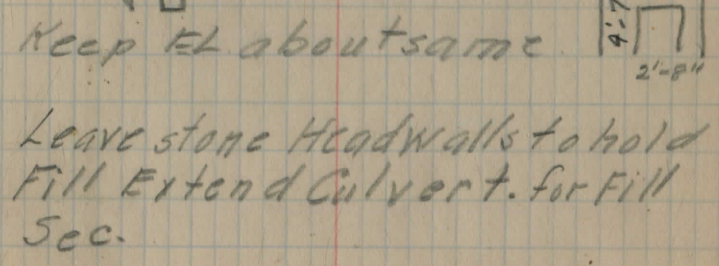 Keep EL about same
2'-8"
Leave stone Headwalls to hold
Fill Extend Culvert. for Fill
Sec.